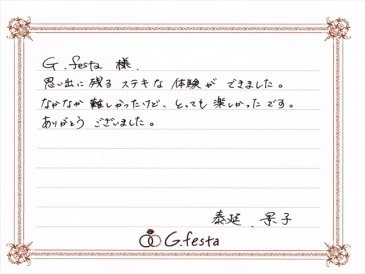 G.festa 様.
思い出に残るステキな体験ができました。
なかなか難しかったけど、とっても楽しかったです。
ありがとうございました。
泰延.景子
G.festa